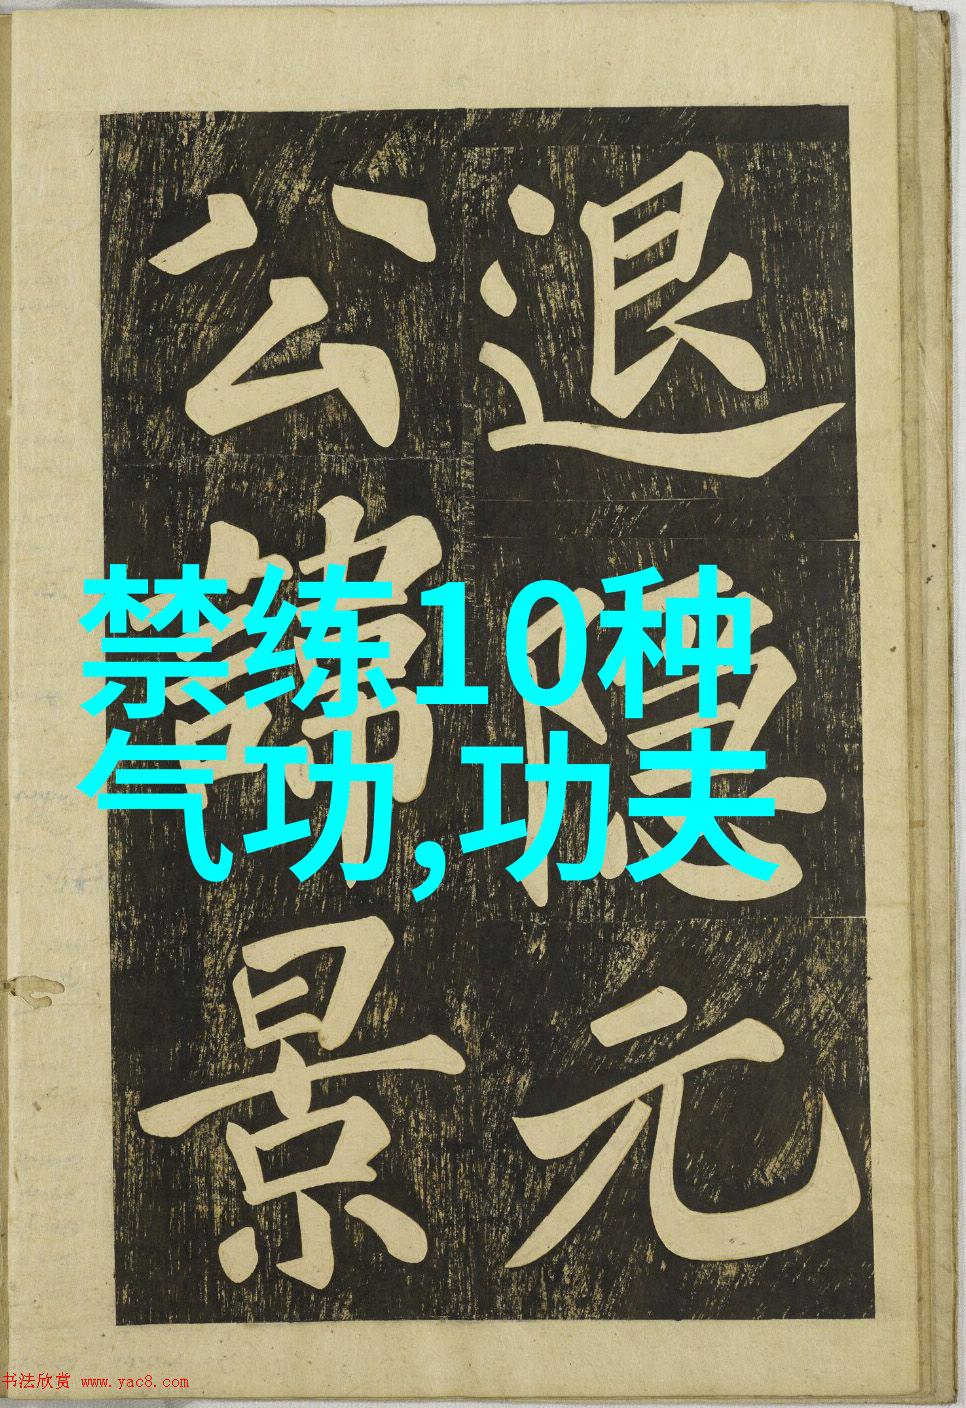 退元
公景
禁练10种
气功,功夫
书法欣赏 www.yac8.com